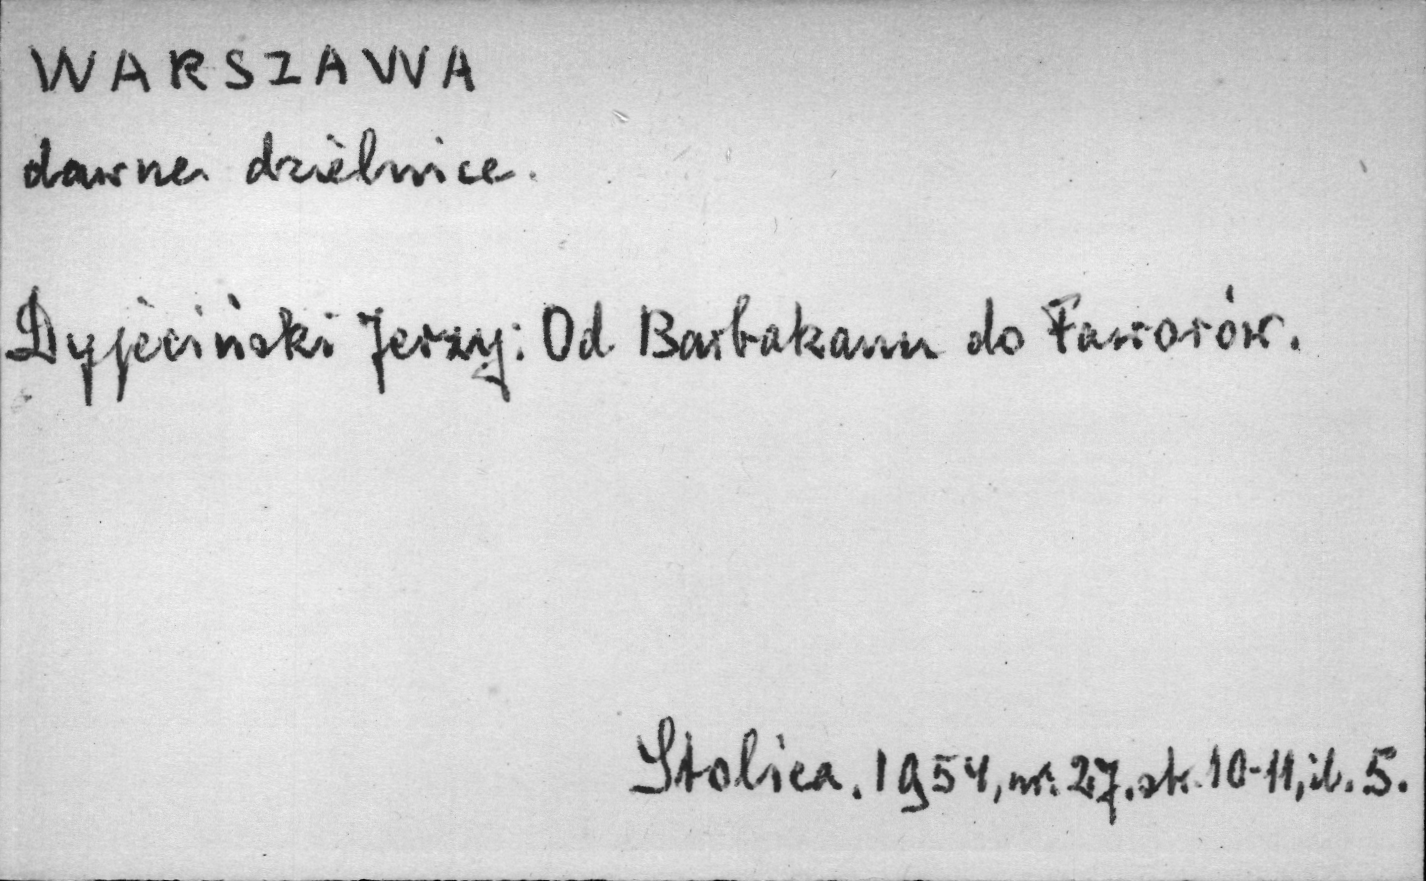 WARSZAWA
dawne dzielnice.
Dyjeciński Jerzy: Od Barbakanu do Faworów.
Stolica. 1954, nr. 27. str. 10-11, il. 5.